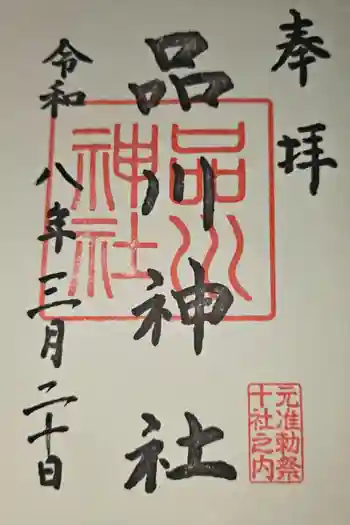 奉拝
品川神社
令和八年三月二十日
品川
神社
元准勅祭
十社之内